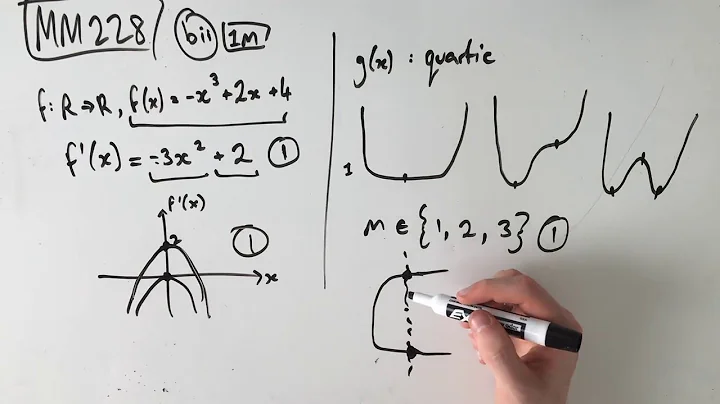 MM228
bii
1M
f: R⇒R, f(x) = -x³ + 2x + 4
f'(x) = -3x² + 2 ①
f'(x)
2
x
①
g(x) : quartic
1
m ∈ {1, 2, 3} ①
EX